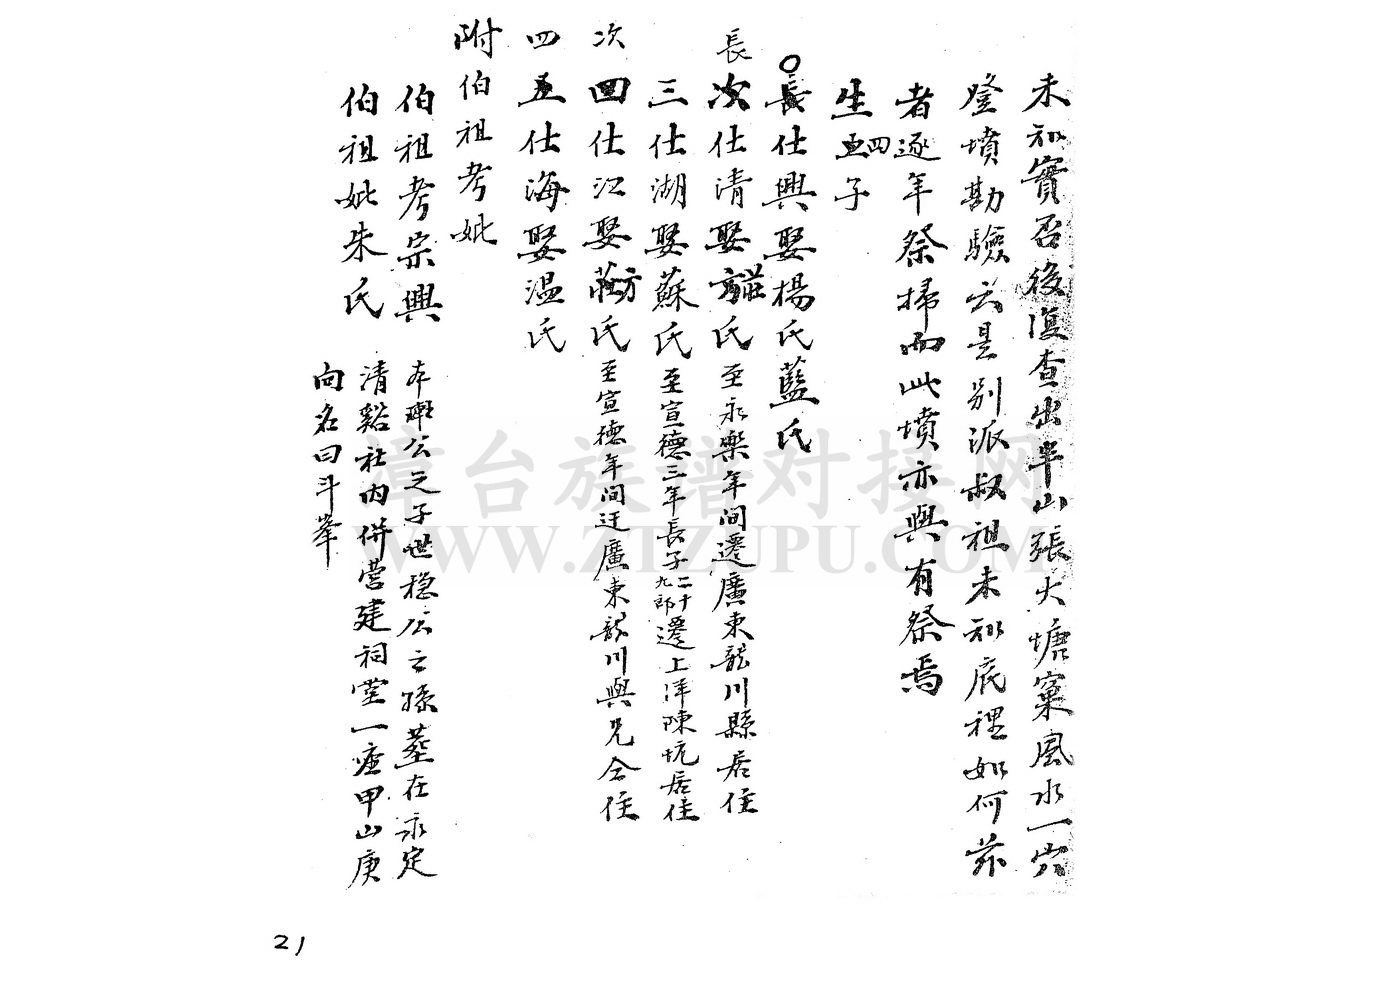 未知實否後復查出半山張火塘窠風水一穴
登墳勘驗云是别派叔祖未知底裡如何茲
者逐年祭掃而此墳亦與有祭焉
生五四子
長仕興娶楊氏藍氏
長
次仕清娶莊氏至永樂年间遷廣東龍川縣居住
三仕湖娶蘇氏至宣德三年長子二十九郎遷上洋陳坑居住
次
四仕江娶莊方氏至宣德年间迁廣東龍川與兄仝住
四
五仕海娶温氏
附伯祖考妣
伯祖考宗興
伯祖妣朱氏
公之子世稳公之孫墓在永定
清谿社内併營建祠堂一座甲山庚
向名曰斗峯
漳台族谱对接网
WWW.ZTZUPU.COM
21